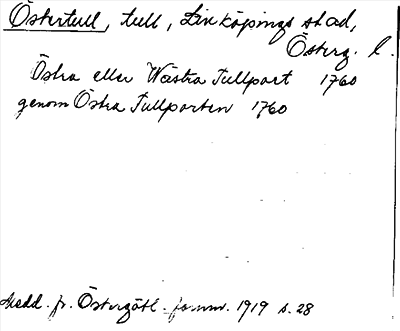 Östertull, tull, Linköpings stad,
Österg. l.
Östra eller Wästra Tullport 1760
genom Östra Tullporten 1760
Medd. fr. Östergötl. fornm. 1919 s. 28